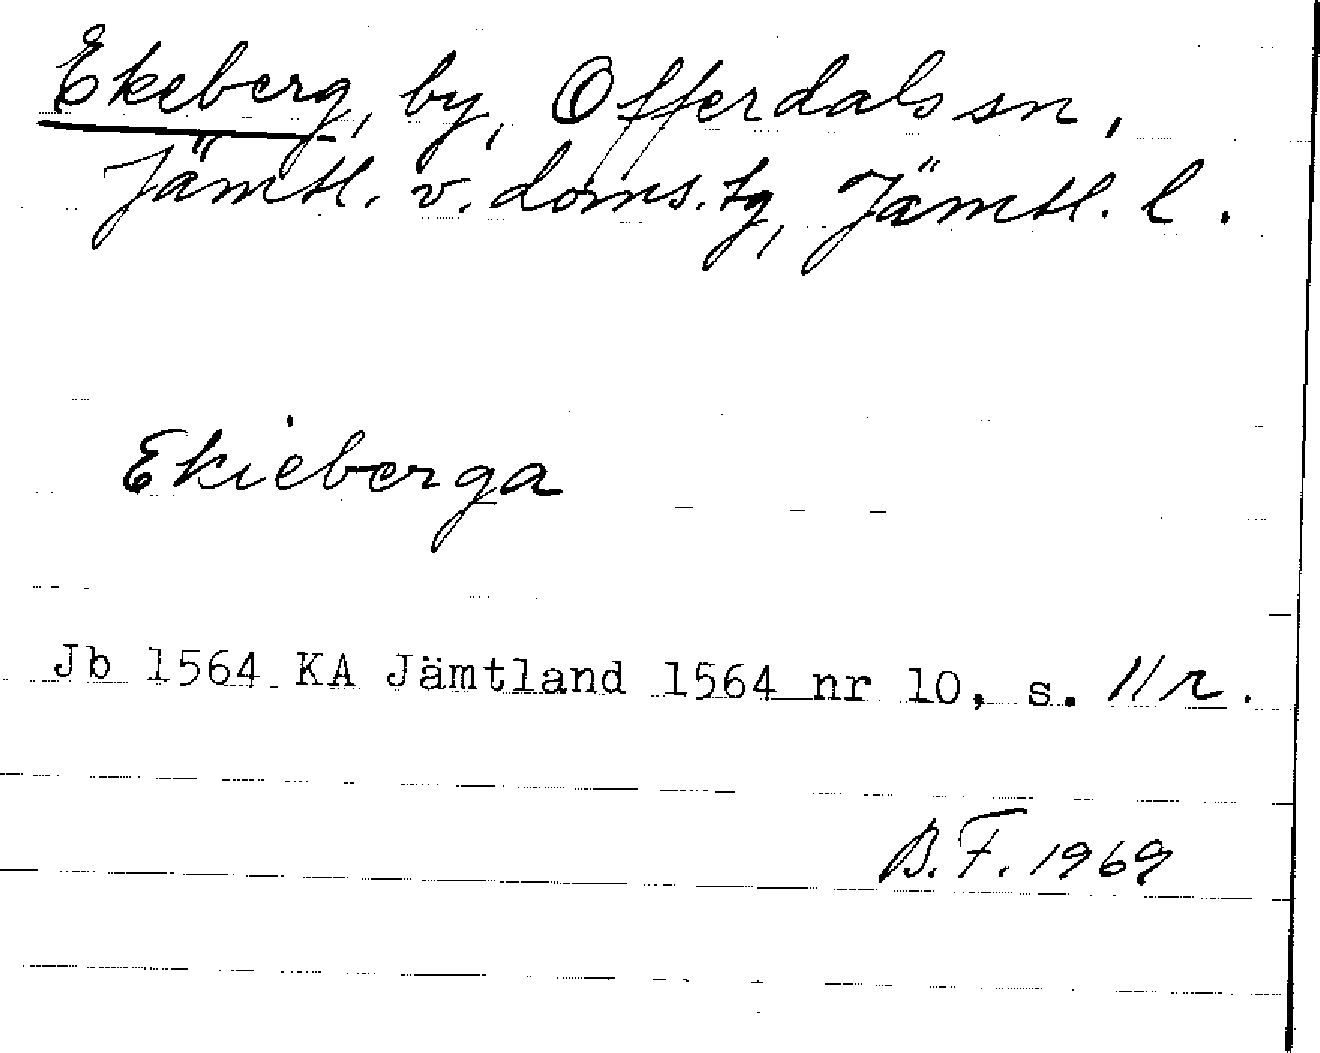 Ekeberg, by, Offerdals sn,
Jämtl. v. doms.tg, Jämtl. l.
Ekieberga
Jb 1564 KA Jämtland 1564 nr 10, s. 11 r.
B.F. 1969